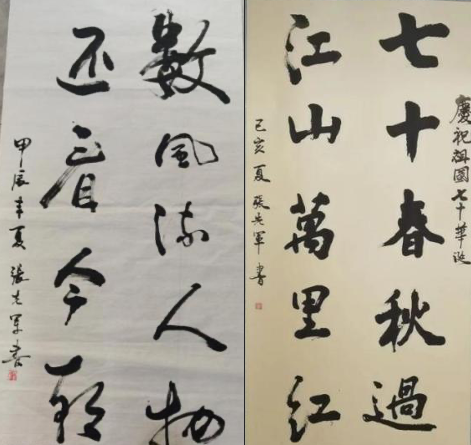 數風流人物
还看今朝
甲辰年夏 張 軍書
慶祝祖國七十華誕
七十春秋過
江山萬里红
己亥夏 張 軍書